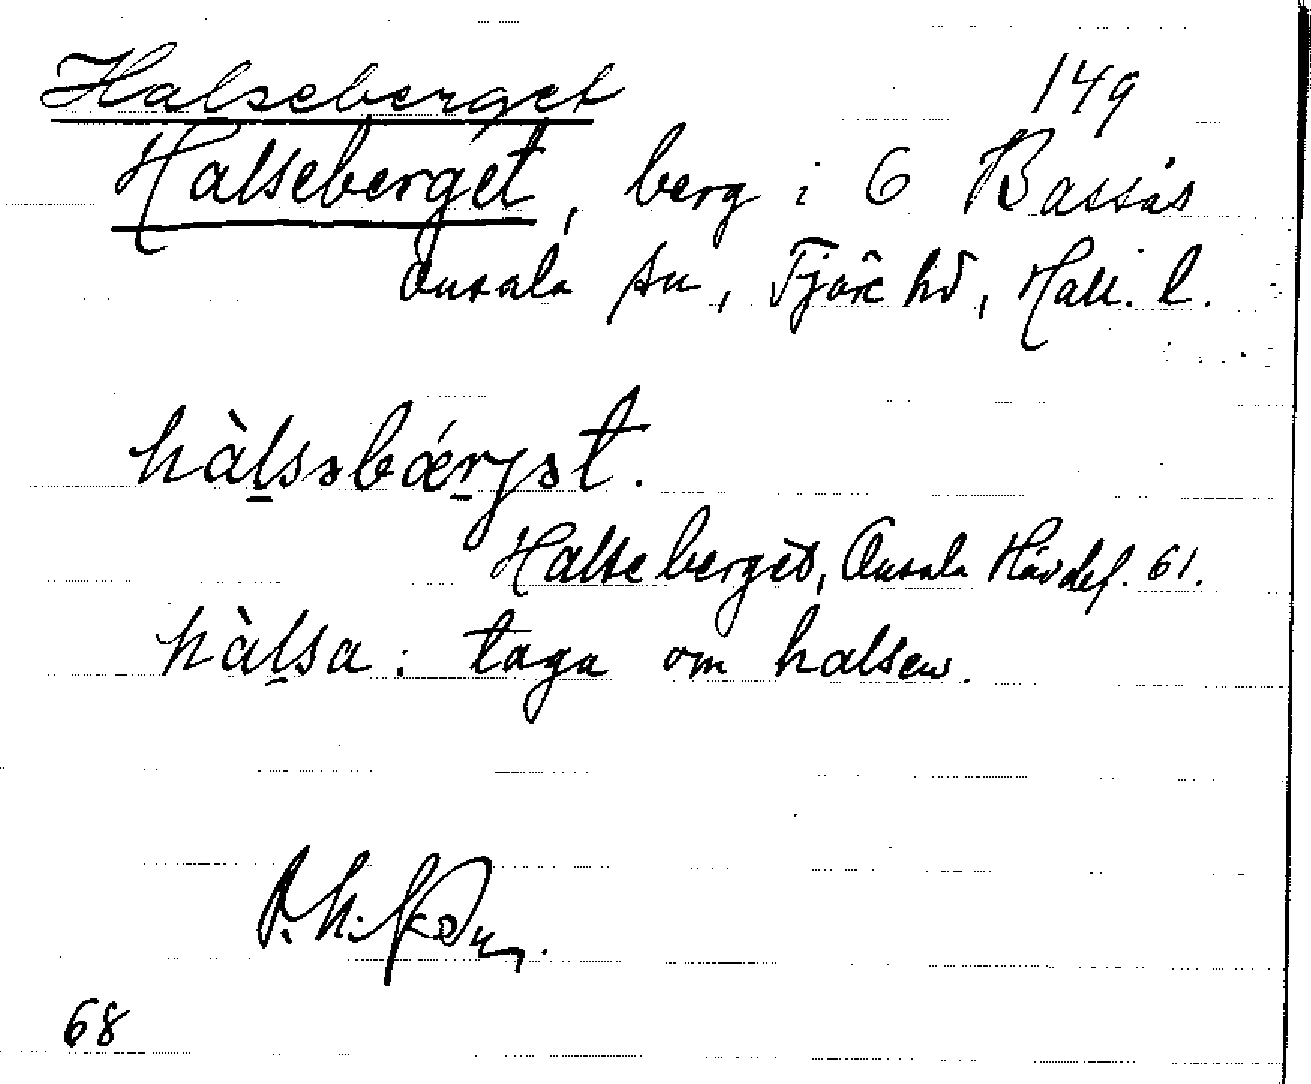 Halseberget
149
Halseberget, berg i 6 Bassås
Onsala sn, Fjäre hd, Hall. l.
hàlsəbǽrjət.
Halseberget, Onsala Hävdef. 61.
hàlsa: taga om halsen.
68